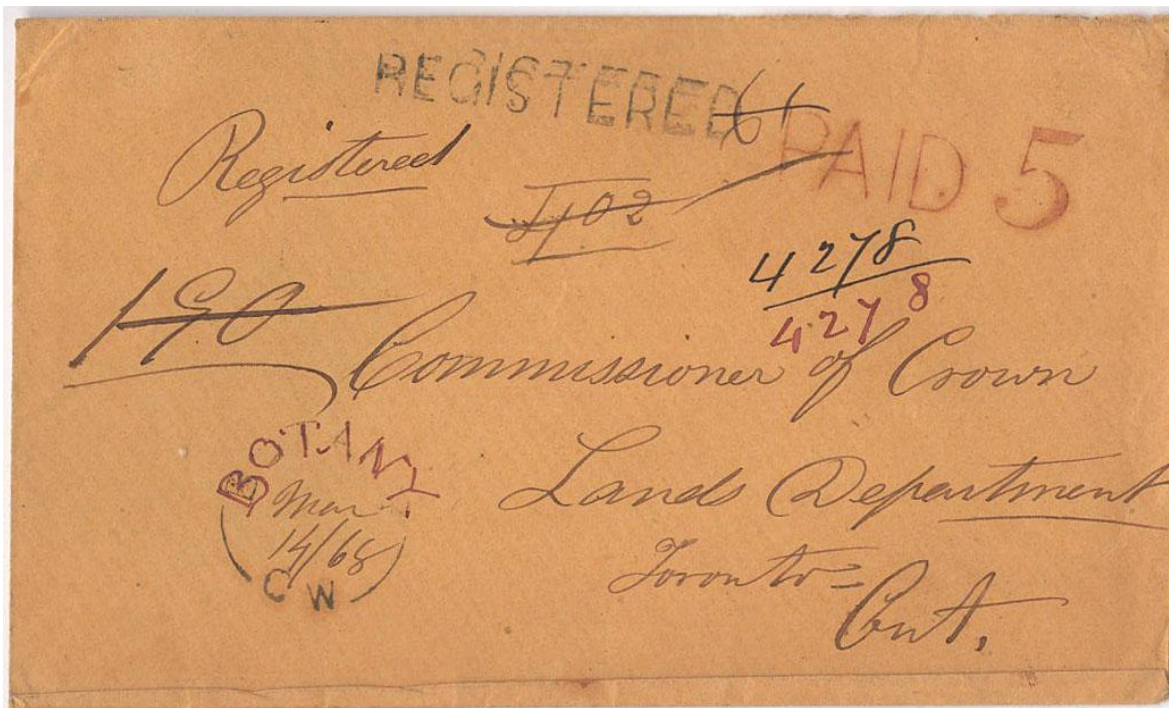 REGISTERED 6
PAID 5
Registered
4278
4278
190
Commissioner of Crown
Lands Department
Toronto
Ont.
BOTANY
Mar
14/68
C W